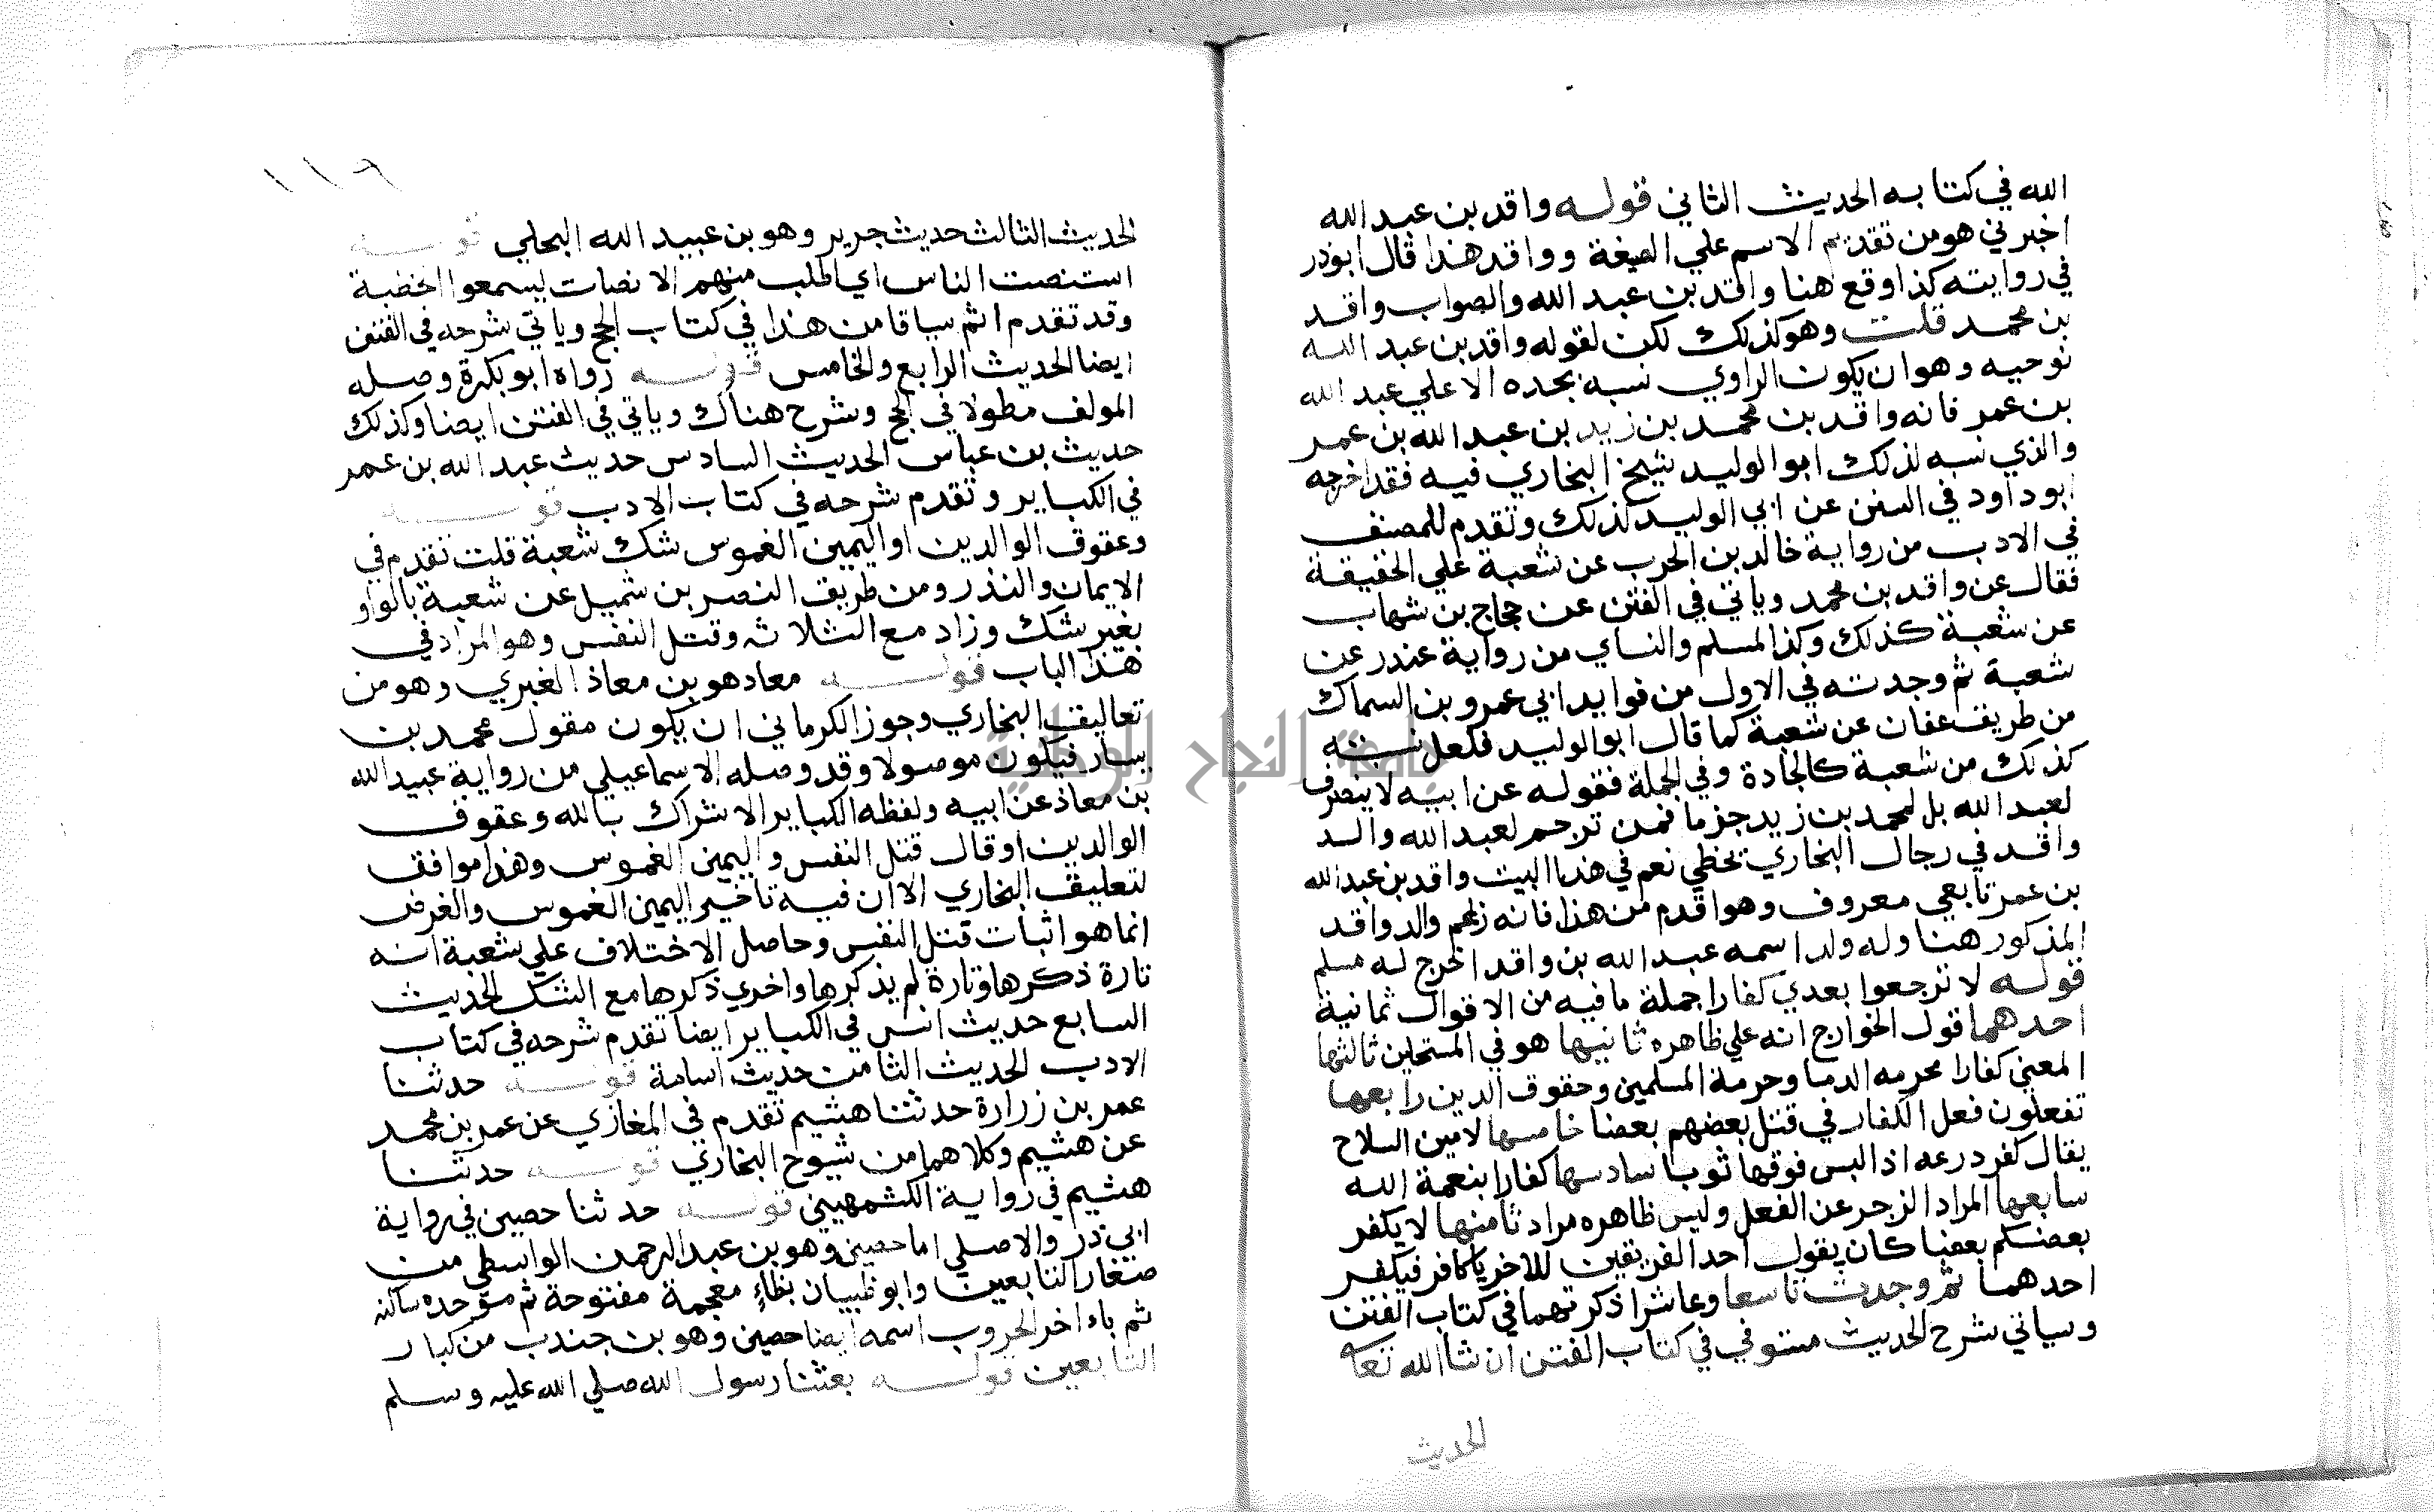 الله في كتابه الحديث الثاني قوله واقد بن عبد الله
اخبرني هو من تقديم الاسم علي الصيغة وواقد هذا قال ابوذر
في روايته كذا وقع هنا واقد بن عبد الله والصواب واقد
بن محمد قلت وهو كذلك لكن لقوله واقد بن عبد الله
توجيه وهو ان يكون الراوي نسبه بجده الاعلي عبد الله
بن عمر فانه واقد بن محمد بن زيد بن عبد الله بن عمر
والذي نسبه لذلك ابو الوليد شيخ البخاري فيه فقد اخرجه
ابوداود في السنن عن ابي الوليد كذلك وتقدم للمصنف
في الادب من رواية خالد بن الحرب عن شعبة علي الحقيقة
فقال عن واقد بن محمد وياتي في الفتن عن حجاج بن شهاب
عن شعبة كذلك وكذا المسلم والنساي من رواية عندر عن
شعبة ثم وجدته في الاول من فوايد ابي عمرو بن السماك
من طريق عفان عن شعبة كما قال ابو الوليد فلعل نسبته
كذلك من شعبة كالجادة وفي الجملة فقوله عن ابيه لا ينصرف
لعبد الله بل لمحمد بن زيد جزما فمن ترجم لعبد الله والد
واقد في رجال البخاري تخطي نعم في هذا البيت واقد بن عبد الله
بن عمر تابعي معروف وهو اقدم من هذا فانه زلعم والد واقد
المذكور هنا وله ولد اسمه عبد الله بن واقد اخرج له مسلم
قوله لا ترجعوا بعدي كفارا جملة ما فيه من الاقوال ثمانية
احدهما قول الخوارج انه علي ظاهره ثانيها هو في المستحلين ثالثها
المعني كفارا بحرمه الدما وحرمة المسلمين وحقوق الدين رابعها
تفعلون فعل الكفار في قتل بعضهم بعضا خامسها لامين السلاح
يقال كفر درعه اذا لبس فوقها ثوبا سادسها كفارا بنعمة الله
سابعها المراد الزجر عن الفعل وليس ظاهره مراد ثامنها لا يكفر
بعضكم بعضا كان يقول احد الفريقين للاخر يا كافر فيكفر
احدهما ثم وجدت تاسعا وعاشرا ذكرتهما في كتاب الفتن
وسياتي شرح الحديث مستوفي في كتاب الفتن ان شا الله تعا
الحديث
١١٩
الحديث الثالث حديث جرير وهو بن عبيد الله البجلي قوله
استنصت الناس اي اطلب منهم الانصات ليسمعوا الخطبة
وقد تقدم اتم سياقا من هذا في كتاب الحج وياتي شرحه في الفتن
ايضا الحديث الرابع والخامس قوله رواه ابو بكرة وصله
المولف مطولا في الحج وشرح هناك وياتي في الفتن ايضا وكذلك
حديث بن عباس الحديث السادس حديث عبد الله بن عمر
في الكباير وتقدم شرحه في كتاب الادب قوله
وعقوق الوالدين او اليمين الغموس شك شعبة قلت تقدم في
الايمان والنذر ومن طريق النضر بن شميل عن شعبة بالواو
بغير شك وزاد مع الثلاثه وقتل النفس وهو المراد في
هذا الباب قوله معاد هو بن معاذ العنبري وهو من
تعاليق البخاري وجوز الكرماني ان يكون مقول محمد بن
بسار فيكون موصولا وقد وصله الاسماعيلي من رواية عبيد الله
بن معاذ عن ابيه ولفظه الكباير الاشراك بالله وعقوق
الوالدين او قال قتل النفس واليمين الغموس وهذا موافق
لتعليق البخاري الا ان فيه تاخير اليمين الغموس والغرض
انما هو اثبات قتل النفس وحاصل الاختلاف علي شعبة انه
تارة ذكرها وتارة لم يذكرها واخري ذكرها مع الشك الحديث
السابع حديث انس في الكباير ايضا تقدم شرحه في كتاب
الادب الحديث الثامن حديث اسامة قوله حدثنا
عمر بن زرارة حدثنا هشيم تقدم في المغازي عن عمر بن محمد
عن هشيم وكلاهما من شيوخ البخاري قوله حدثنا
هشيم في رواية الكشمهيني قوله حدثنا حصين في رواية
ابي ذر والاصلي اما حصين وهو بن عبد الرحمن الواسطي من
صغار التابعين وابو ظبيان بظاء معجمة مفتوحة ثم موحده ساكنه
ثم ياء اخر الحروب اسمه ايضا حصين وهو بن جندب من كبار
التابعين قوله بعثنا رسول الله صلي الله عليه وسلم
جامعة النجاح الوطنية